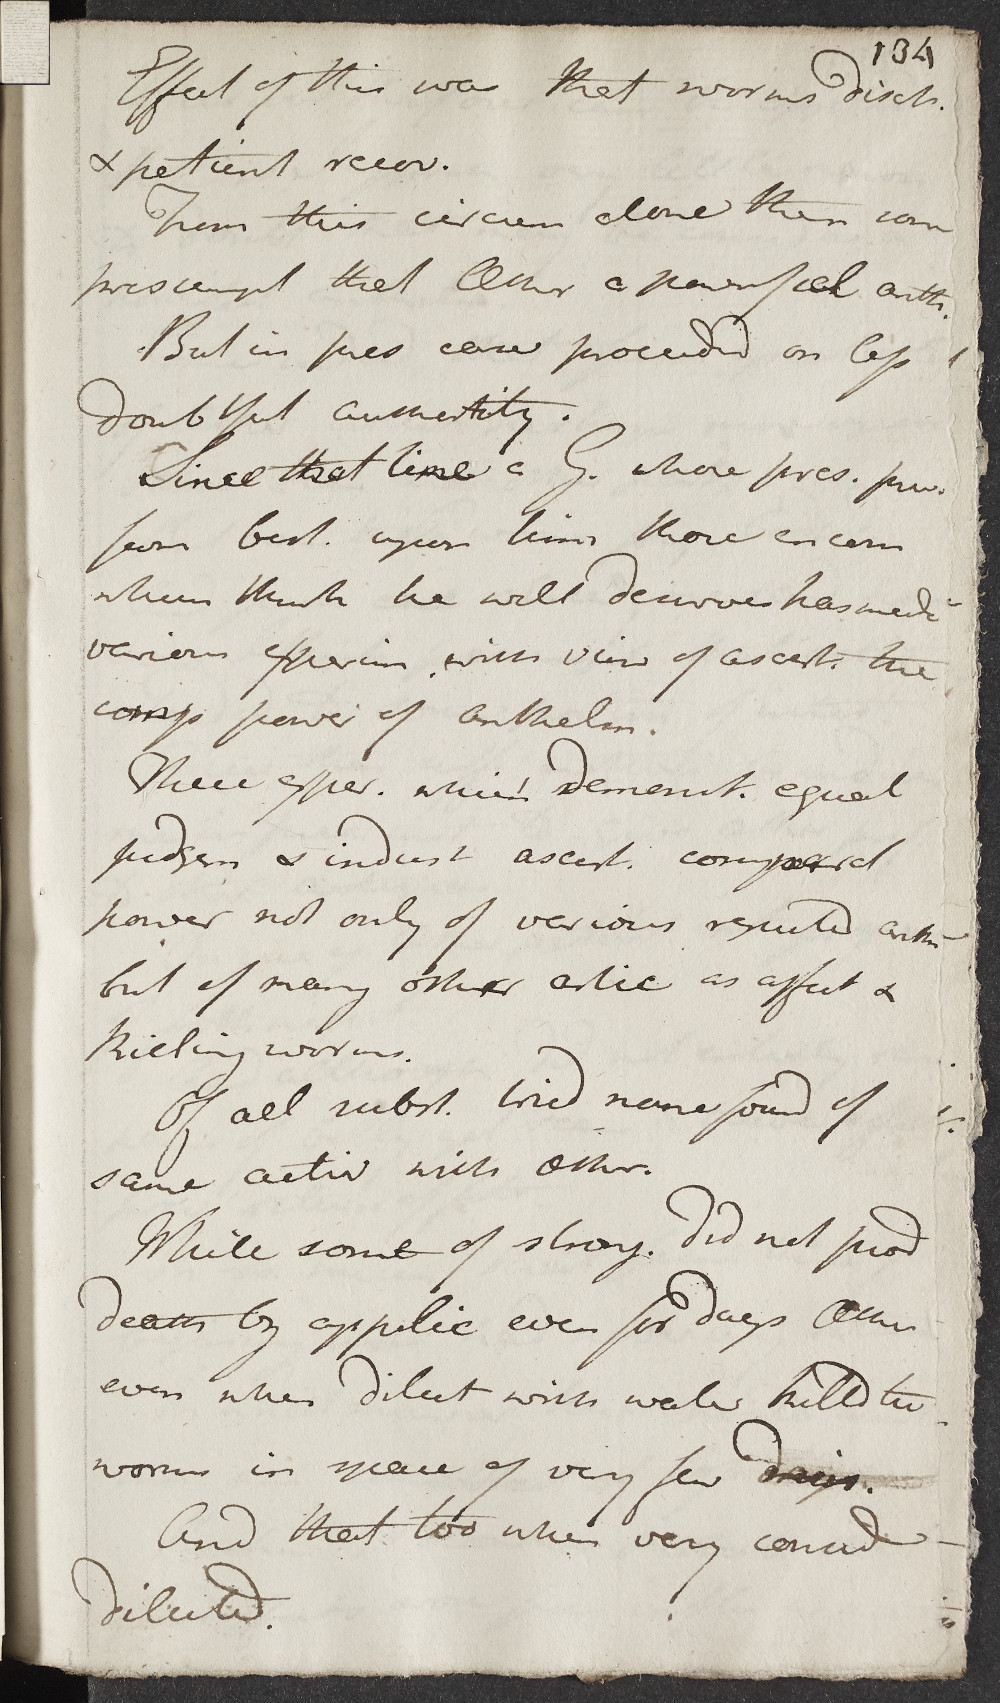 134
Effect of this was that worms disch.
& patient recov.
From this circum alone then can
presumpt that Æther a powerful anth.
But in pres case proceeded on less
doubtful authority.
Since that time a G. whose pres. pre.
from best. upon him those encom
whim think he well deserves has made
various experim with view of ascert. the
comp power of Anthelm.
These exper. which demonst. equal
judgem & indust ascert. compard
power not only of various reputed anth
but of many other artic as affect &
killing worms.
Of all subst. tried none found of
same activ with Æther.
While some of strong. did not prod
death by applic even for days Æther
even when dilut with water killd the
worms in space of very few
And that too when very consid
diluted.